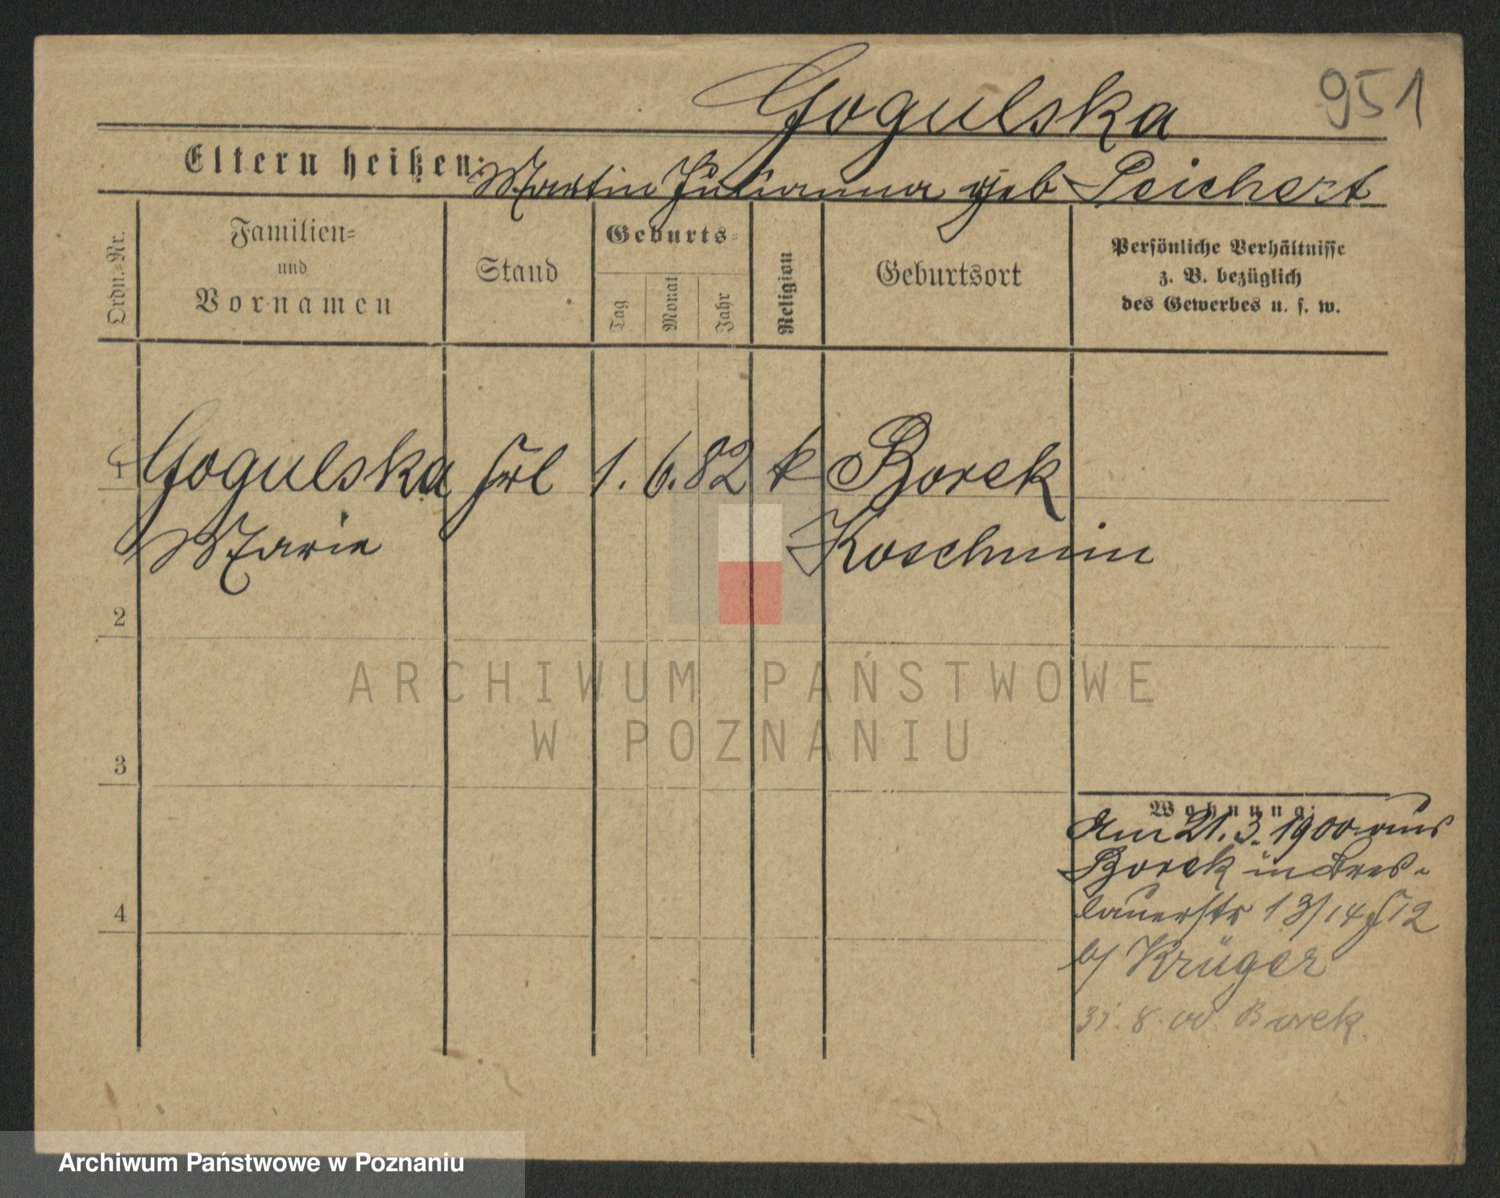 Gogulska
951
Eltern heißen: Martin Julianna geb Peichert
Ordn.-Nr.
Familien-
und
Vornamen
Stand
Geburts-
Tag
Monat
Jahr
Religion
Geburtsort
Persönliche Verhältnisse
z. B. bezüglich
des Gewerbes u. s. w.
1 Gogulska Frl 1. 6. 82 k Borek
Marie Koschmin
2
3
4
ARCHIWUM PAŃSTWOWE
W POZNANIU
Wohnung:
Am 21. 3. 1900 aus
Borek in Bres-
lauerstr 13/14
b/ Krüger
31. 8. 00 Borek.
Archiwum Państwowe w Poznaniu